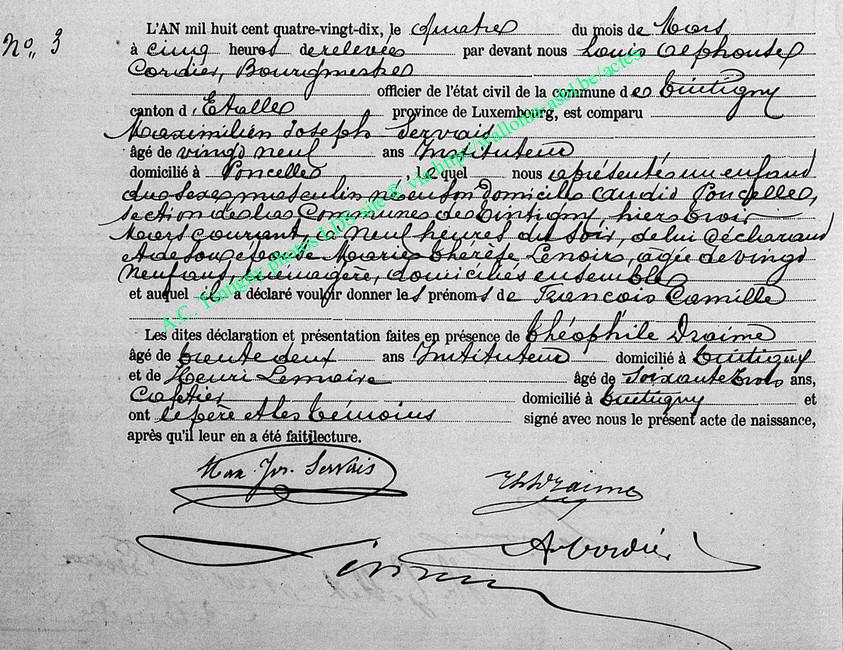 No. 3
L'AN mil huit cent quatre-vingt-dix, le quatre du mois de Mars
à cinq heures de relevée par devant nous Louis Alphonse
Cordier, Bourgmestre
officier de l'état civil de la commune de Tintigny
canton d'Etalle province de Luxembourg, est comparu
Maximilien Joseph Servais
âgé de vingt neuf ans Instituteur
domicilié à Poncelle lequel nous a présenté un enfant
du sexe masculin né en son domicile audit Poncelle,
section de la Commune de Tintigny, hier trois
Mars courant, à neuf heures du soir, de lui déclarant
et de son épouse Marie Thérèse Lenoir, agée de vingt
neuf ans, ménagère, domiciliés ensemble
et auquel il a déclaré vouloir donner les prénoms de François Camille
Les dites déclaration et présentation faites en présence de Théophile Draime
âgé de trente deux ans Instituteur domicilié à Tintigny
et de Henri Lemaire âgé de soixante trois ans,
Cafetier domicilié à Tintigny et
ont le père et les témoins signé avec nous le présent acte de naissance,
après qu'il leur en a été fait lecture.
Max. Jos. Servais
Th Draime
A Cordier
A.C. Tintigny photos LDS site © via http://wallonia-asbl.be/actes